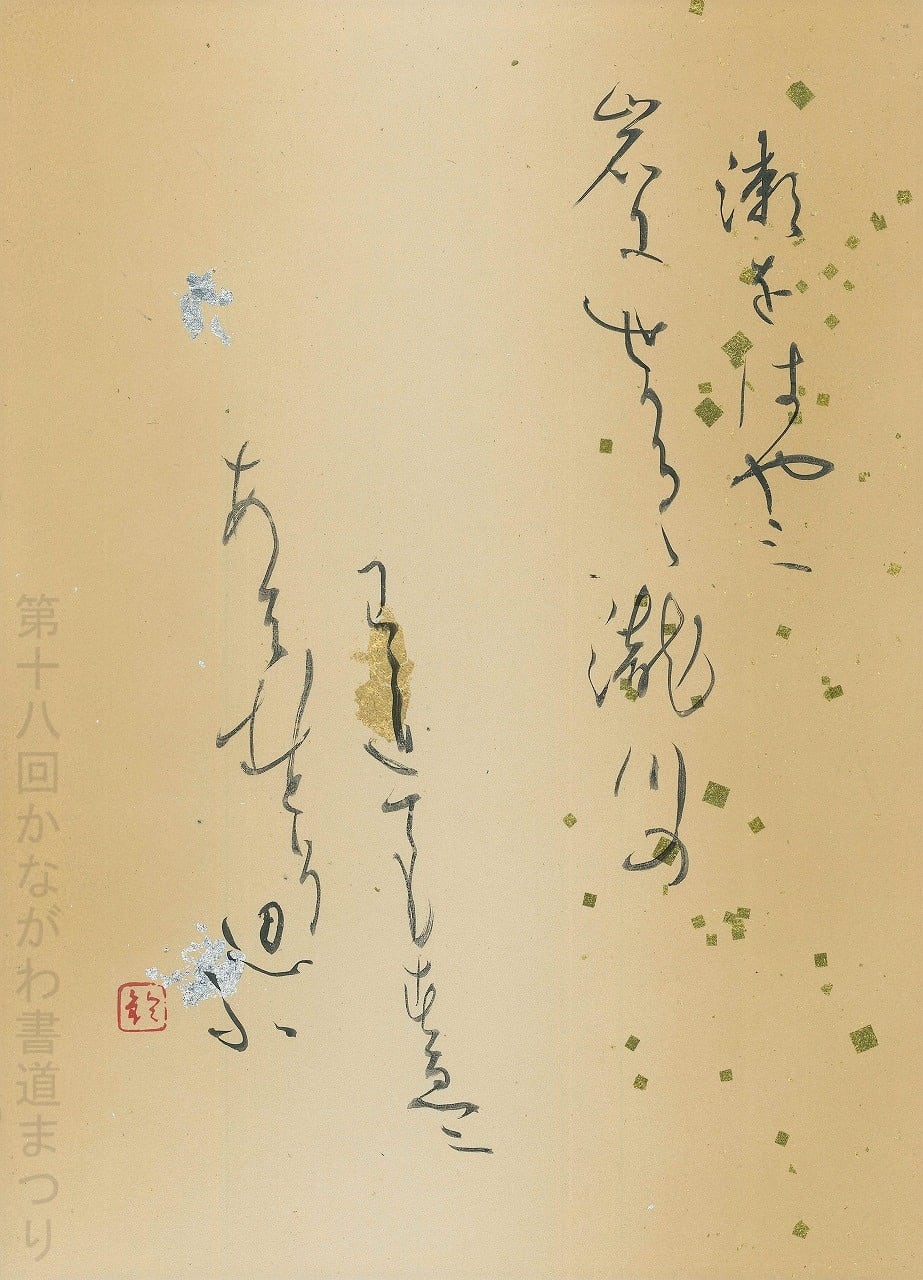 瀬をはやみ
岩にせかるゝ瀧川の
われてもすゑに
あはむとそ思ふ
第十八回かながわ書道まつり